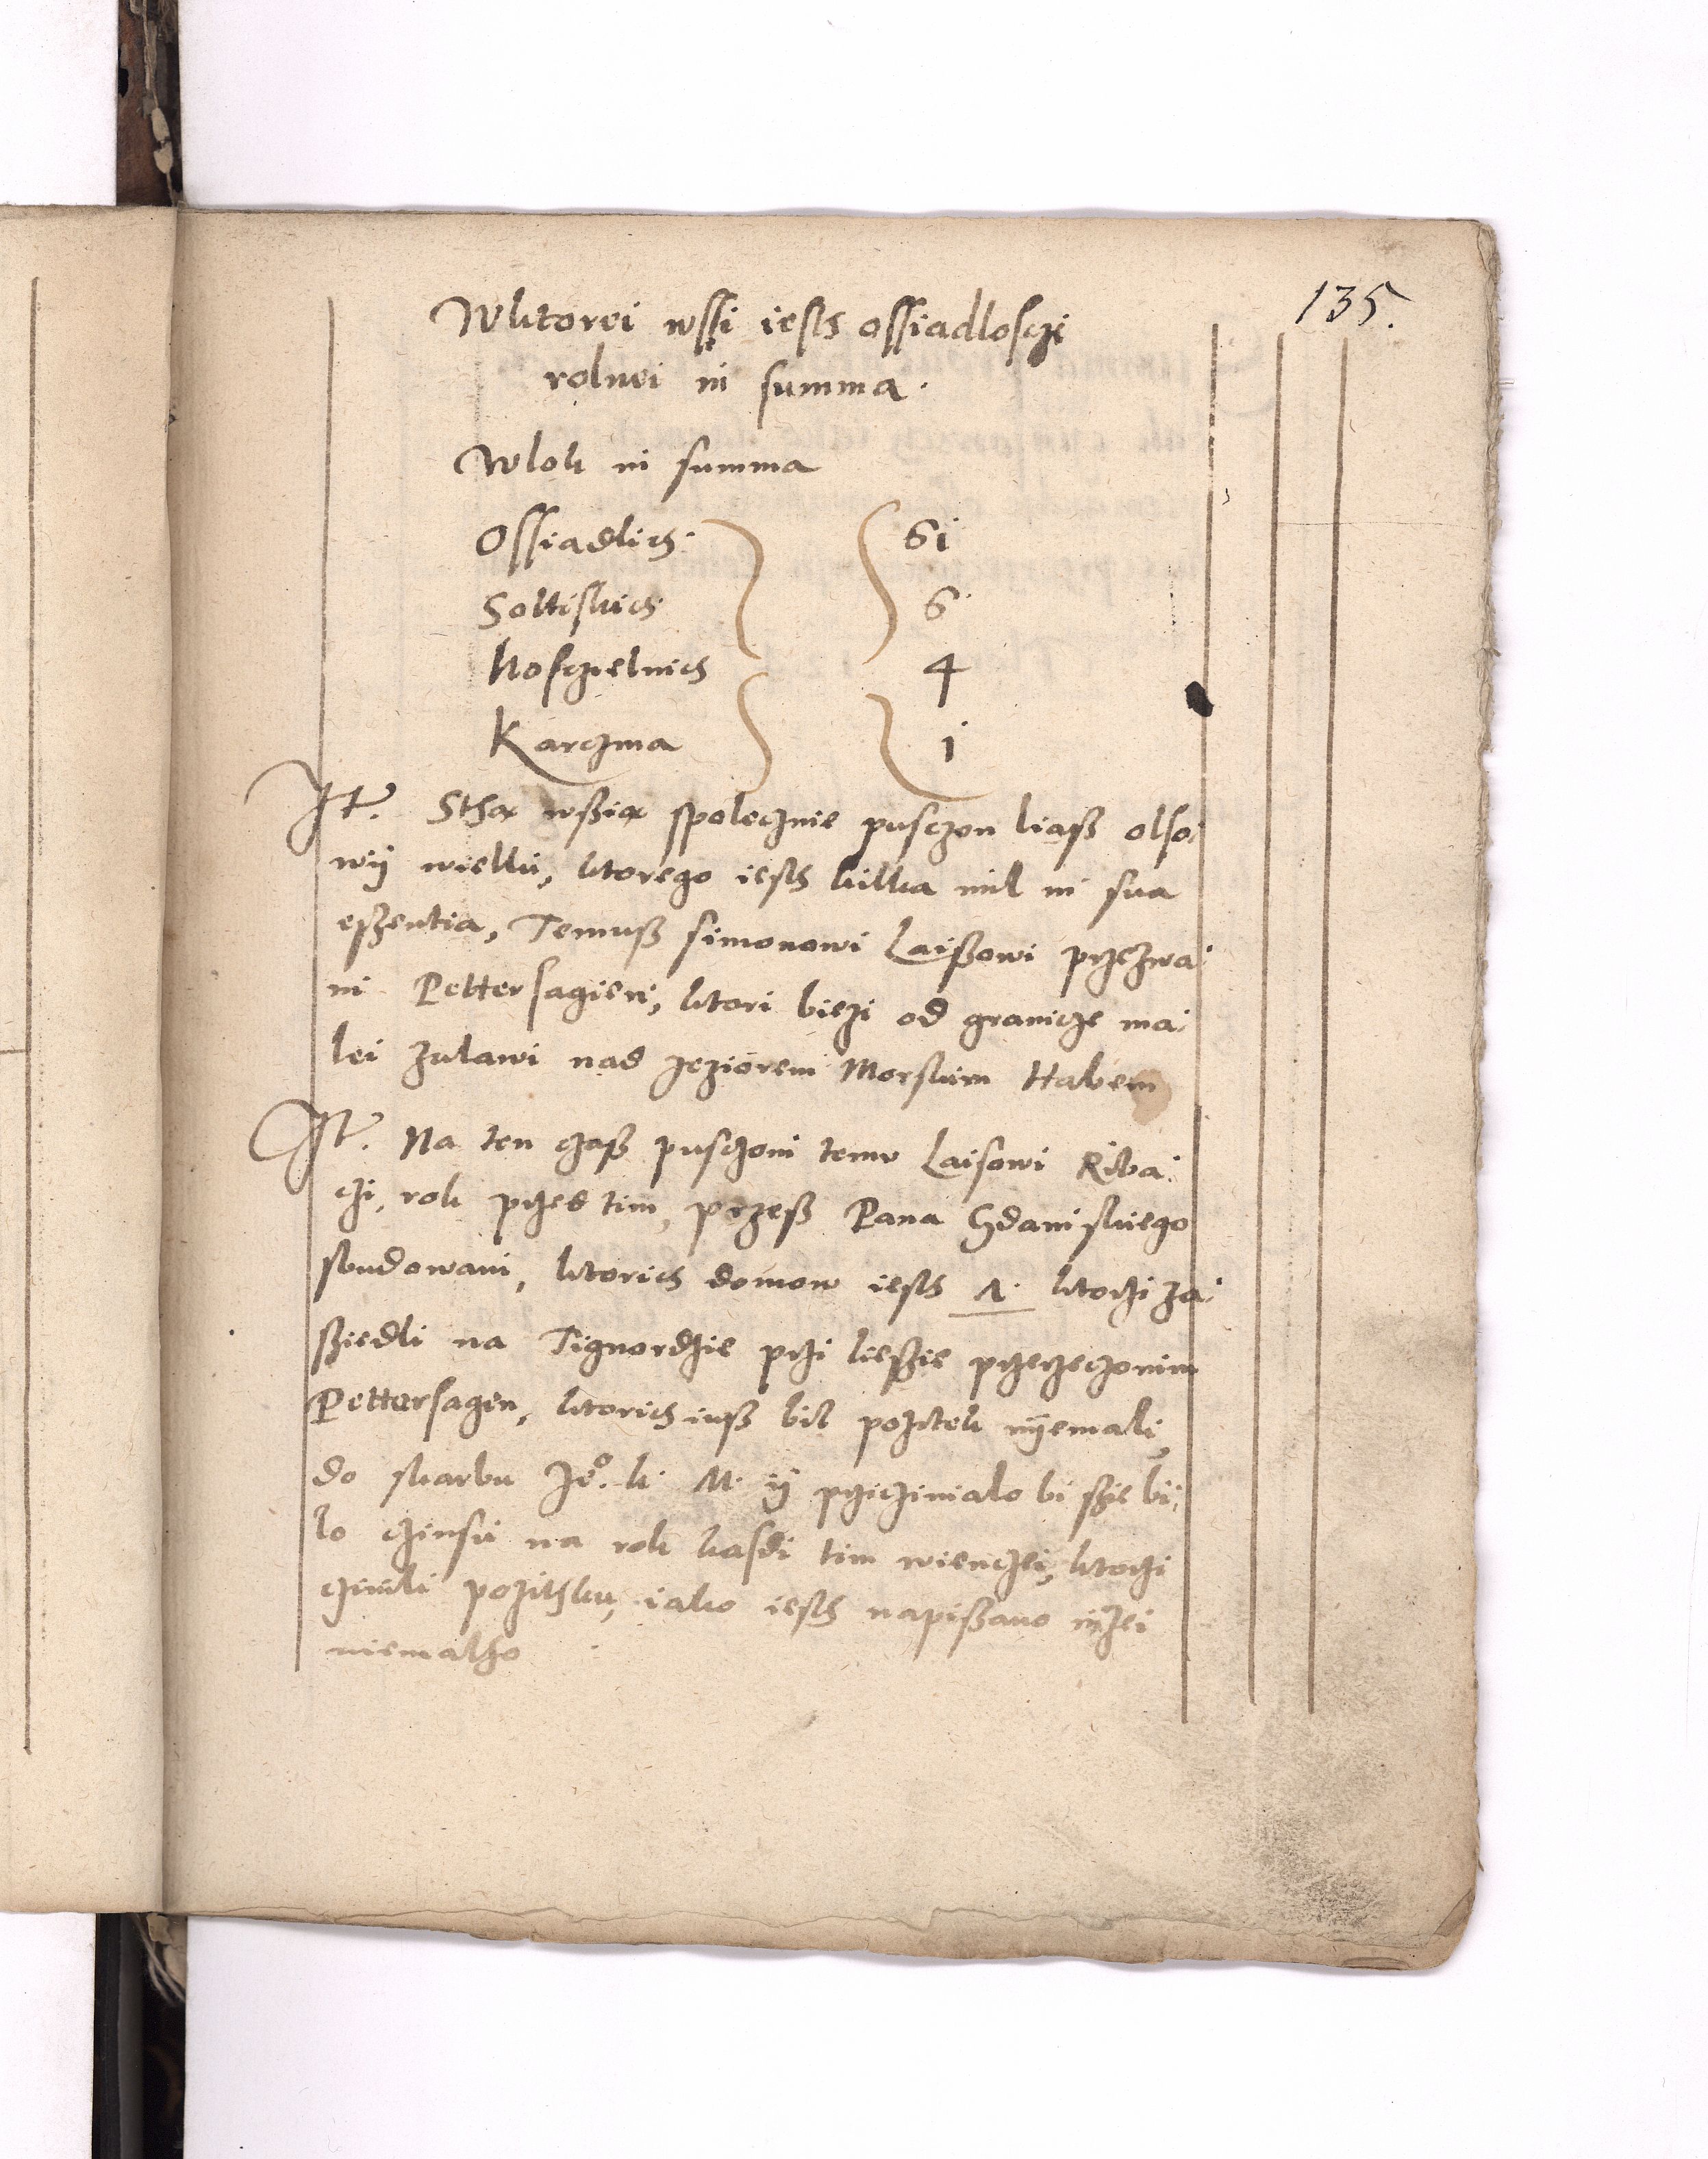 135.
Wktorei wssi iesth ossiadlosczi
rolnei in summa.
Wlok in summa
Ossiadlich 61
Soltiskich 6
Kosczielnich 4
Karczma 1
It. Stha wssia spolecznie pusczon liass olso:
wÿ wielki, ktorego iesth kilka mil in sua
essentia, Temuss simonowi Laissowi przezwa:
ni Pettersagien, ktori biezi od granicze ma:
lei zulawi nad jeziorem Morskim Habem
It. Na ten czass pusczoni temu Laisowi Riba:
czi, rok przed tim, przess Pana Gdaniskiego
sbudowani, ktorich domow iesth ktorzi za:
ssiedli na Tignordzie przi liessie przerzeczonim
Pettersagen, ktorich iuss bil pozitek nÿemali
do skarbu Je°. k. M. ÿ przicziniało bi ssie bi:
lo czinsu na rok kasdi tim wienczei, ktorzi
czinili pozithku, iako iesth napissano nizei
niemalho